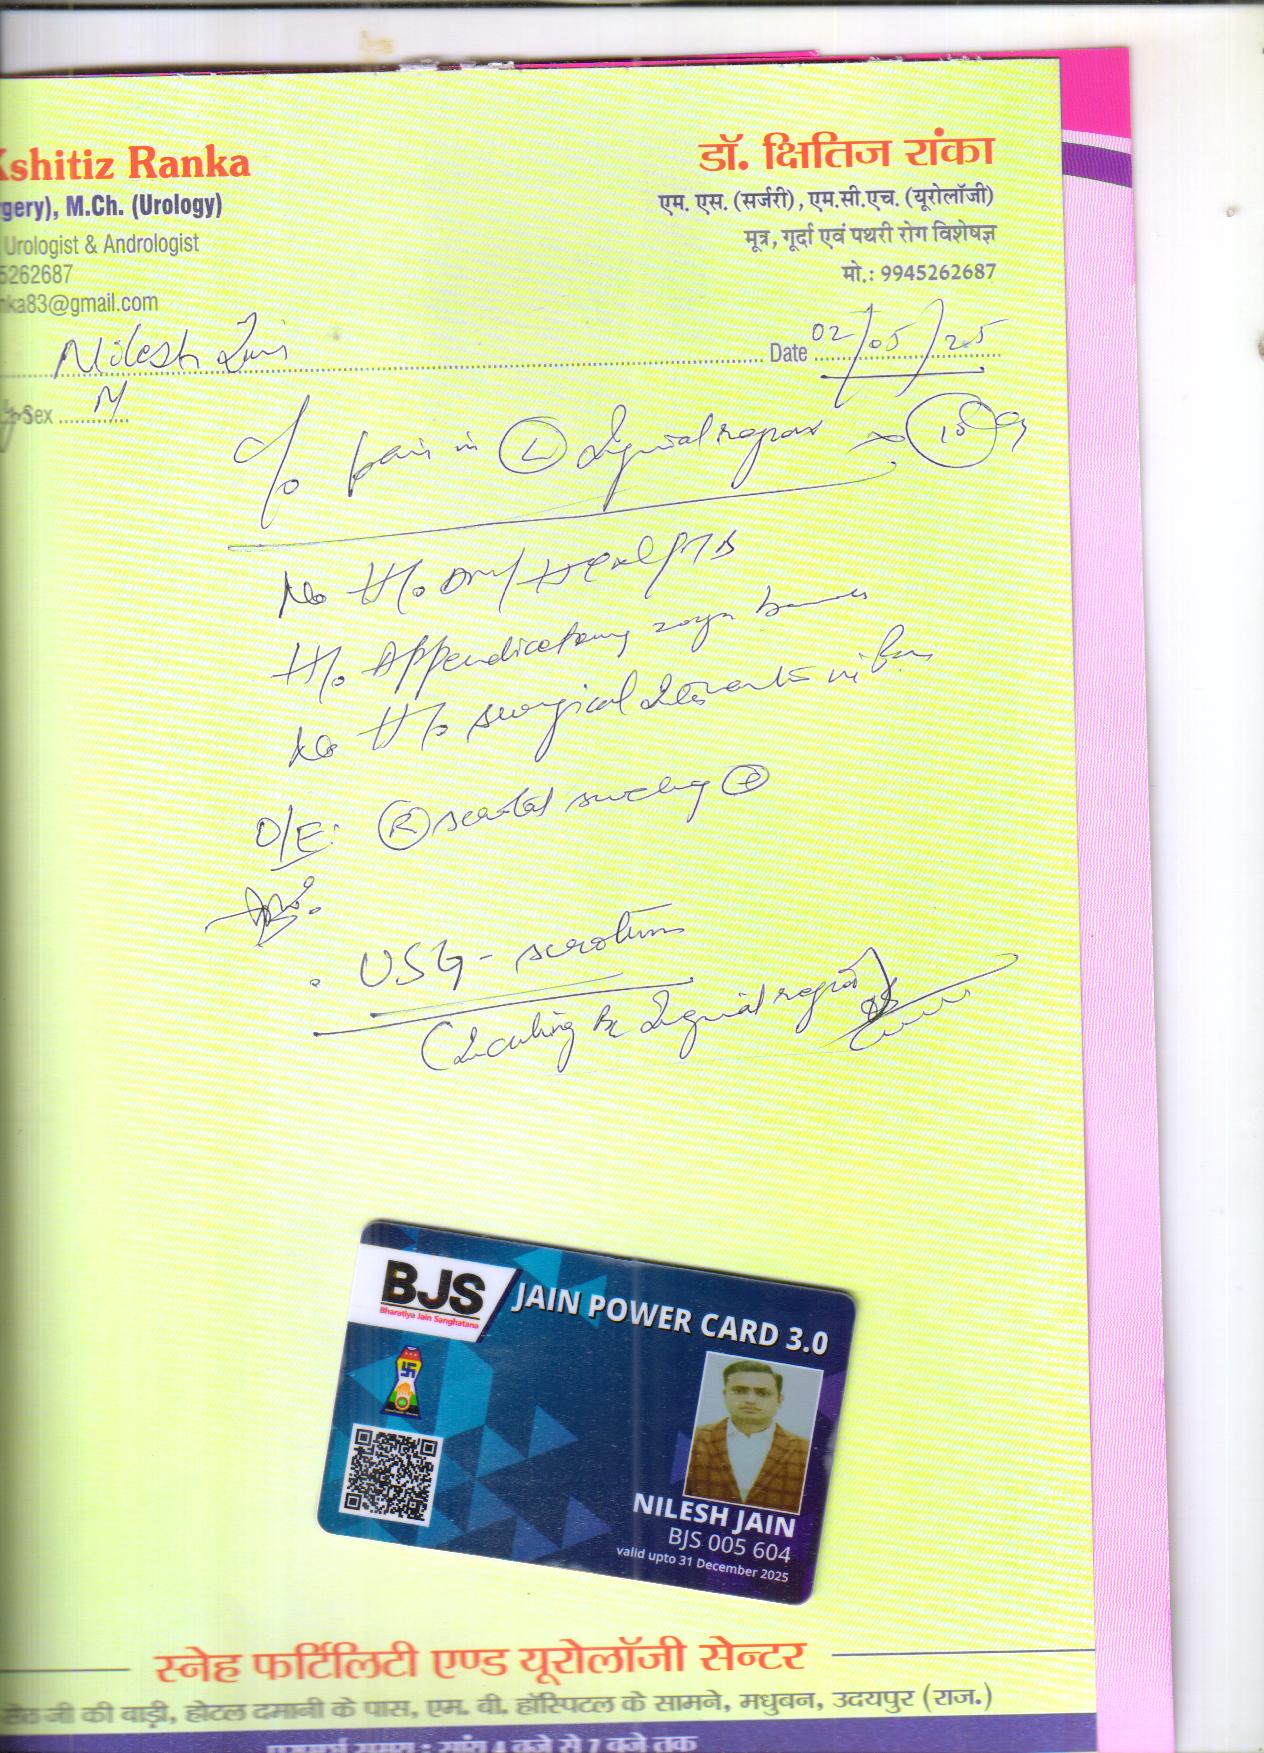 Kshitiz Ranka
rgery), M.Ch. (Urology)
Urologist & Andrologist
5262687
nka83@gmail.com
डॉ. क्षितिज रांका
एम. एस. (सर्जरी), एम.सी.एच. (यूरोलॉजी)
मूत्र, गूर्दा एवं पथरी रोग विशेषज्ञ
मो.: 9945262687
Nilesh Jain
Date 02/05/25
Sex M
c/o pain in (L) Inguinal region
No H/o DM/
H/o Appendicectomy
No H/o surgical
O/E: (R) scrotal swelling (+)
USG - scrotum
Inguinal region
BJS
Bharatiya Jain Sanghatana
JAIN POWER CARD 3.0
NILESH JAIN
BJS 005 604
valid upto 31 December 2025
स्नेह फर्टिलिटी एण्ड यूरोलॉजी सेन्टर
जी की वाड़ी, होटल दमानी के पास, एम. बी. हॉस्पिटल के सामने, मधुबन, उदयपुर (राज.)
परामर्श समय : सांय 4 बजे से 7 बजे तक